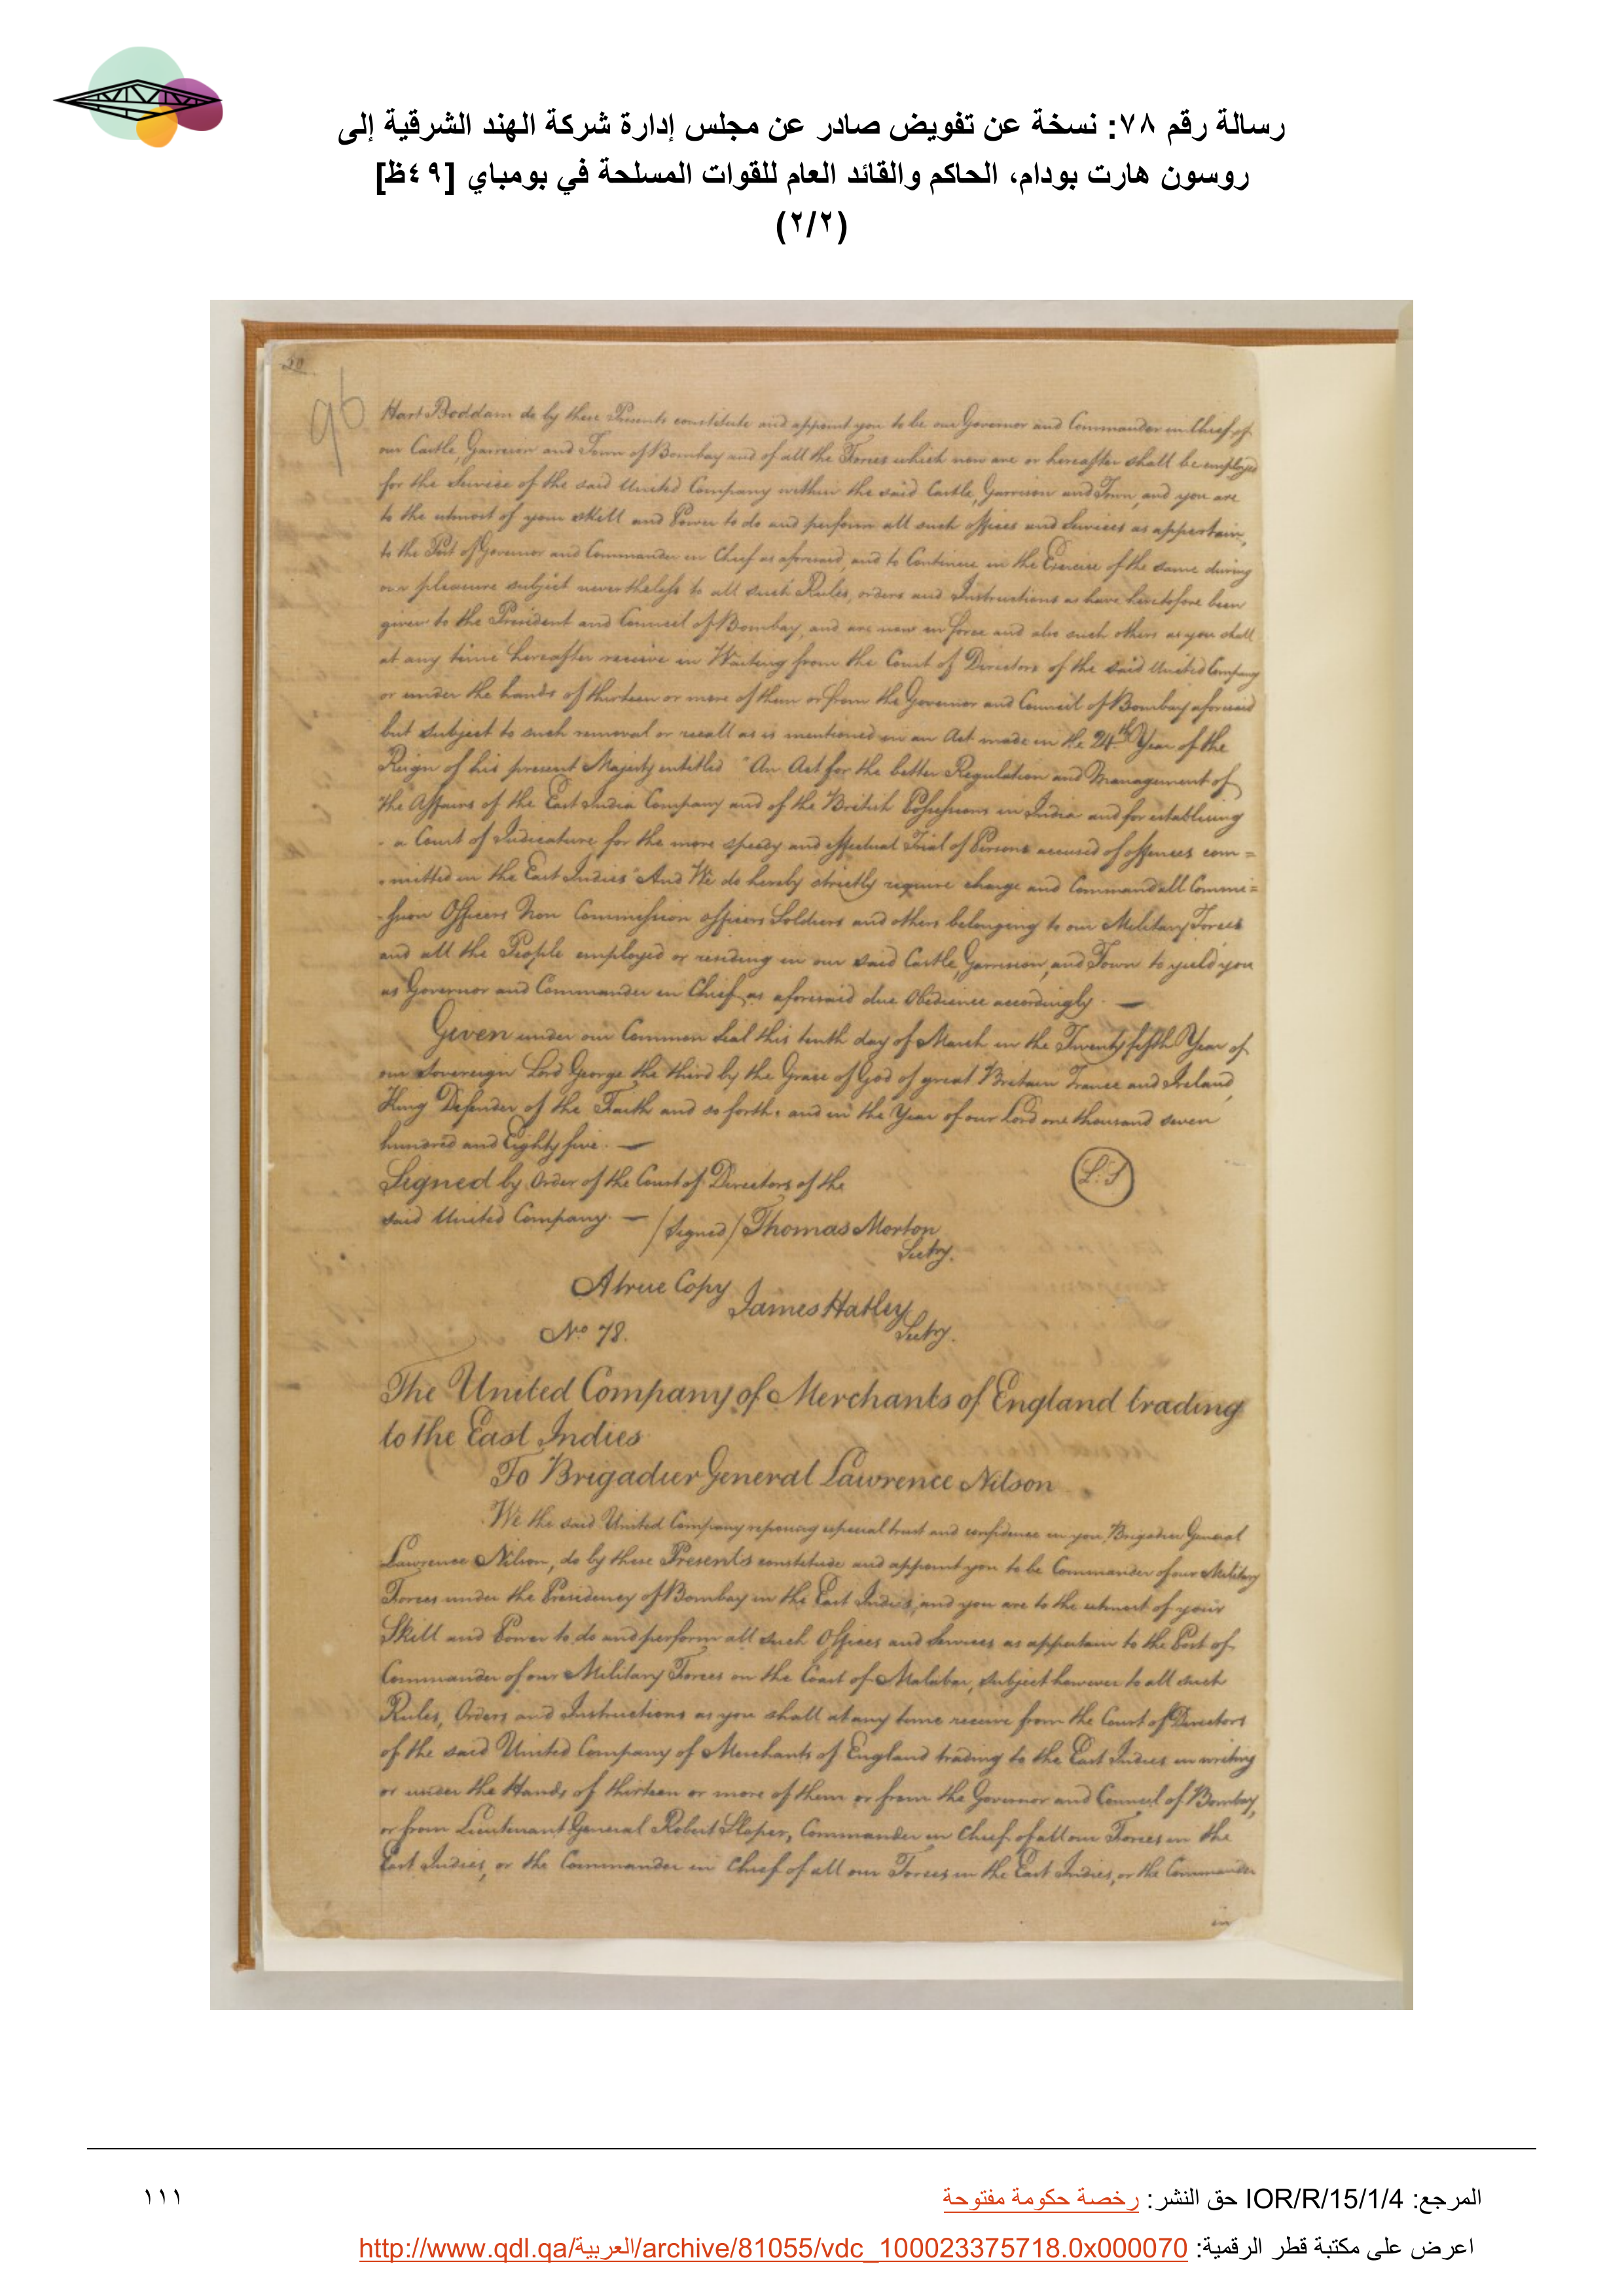 رسالة رقم ٧٨: نسخة عن تفويض صادر عن مجلس إدارة شركة الهند الشرقية إلى
روسون هارت بودام، الحاكم والقائد العام للقوات المسلحة في بومباي [٤٩ظ]
(٢/٢)
96
Hart Boddam do by these Presents constitute and appoint you to be our Governor and Commander in Chief of
our Castle, Garrison and Town of Bombay and of all the Forces which now are or hereafter shall be employed
for the Service of the said United Company within the said Castle, Garrison and Town, and you are
to the utmost of your skill and Power to do and perform all such offices and Services as appertain
to the Post of Governor and Commander in Chief as aforesaid, and to Continue in the Exercise of the same during
our pleasure subject nevertheless to all such Rules, orders and Instructions as have heretofore been
given to the President and Council of Bombay, and are now in force and also such others as you shall
at any time hereafter receive in Writing from the Court of Directors of the said United Company
or under the hands of thirteen or more of them or from the Governor and Council of Bombay aforesaid
but subject to such removal or recall as is mentioned in an Act made in the 24th Year of the
Reign of his present Majesty entitled "An Act for the better Regulation and Management of
the Affairs of the East India Company and of the British Possessions in India and for establising
- a Court of Judicature for the more speedy and effectual Trial of Persons accused of offences com =
- mitted in the East Indies" And We do hereby strictly require charge and Command all Commi =
- ssion Officers Non Commission officers Soldiers and others belonging to our Military Forces
and all the People employed or residing in our said Castle, Garrison, and Town to yield you
as Governor and Commander in Chief as aforesaid due Obedience accordingly. —
Given under our Common Seal this tenth day of March in the Twenty fifth Year of
our Sovereign Lord George the third by the Grace of God of great Britain France and Ireland,
King Defender of the Faith and so forth: and in the Year of our Lord one thousand seven
hundred and Eighty five. —
L:S
Signed by Order of the Court of Directors of the
said United Company. — /Signed/ Thomas Morton
Secty.
A true Copy
James Hatley
Secty.
No 78.
The United Company of Merchants of England trading
to the East Indies
To Brigadier General Lawrence Nilson
We the said United Company reposing especial trust and confidence in you, Brigadier General
Lawrence Nilson, do by these Presents constitute and appoint you to be Commander of our Military
Forces under the Presidency of Bombay in the East Indies, and you are to the utmost of your
Skill and Power to do and perform all such Offices and Services as appertain to the Post of
Commander of our Military Forces on the Coast of Malabar, subject however to all such
Rules, Orders and Instructions as you shall at any time receive from the Court of Directors
of the said United Company of Merchants of England trading to the East Indies in writing
or under the Hands of thirteen or more of them or from the Governor and Council of Bombay,
or from Lieutenant General Robert Sloper, Commander in Chief of all our Forces in the
East Indies, or the Commander in Chief of all our Forces in the East Indies, or the Commander
in
المرجع: IOR/R/15/1/4 حق النشر: رخصة حكومة مفتوحة
١١١
اعرض على مكتبة قطر الرقمية: http://www.qdl.qa/العربية/archive/81055/vdc_100023375718.0x000070